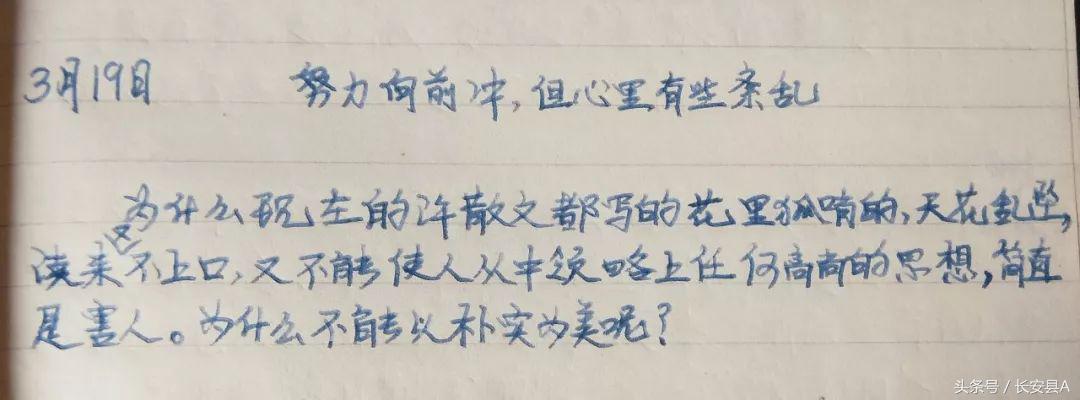 3月19日 努力向前冲,但心里有些紊乱
为什么现在的许散文都写的花里狐哨的,天花乱坠,
读来又不上口,又不能使人从中领略上任何高尚的思想,简直
是害人。为什么不能以朴实为美呢?
头条号/长安县A